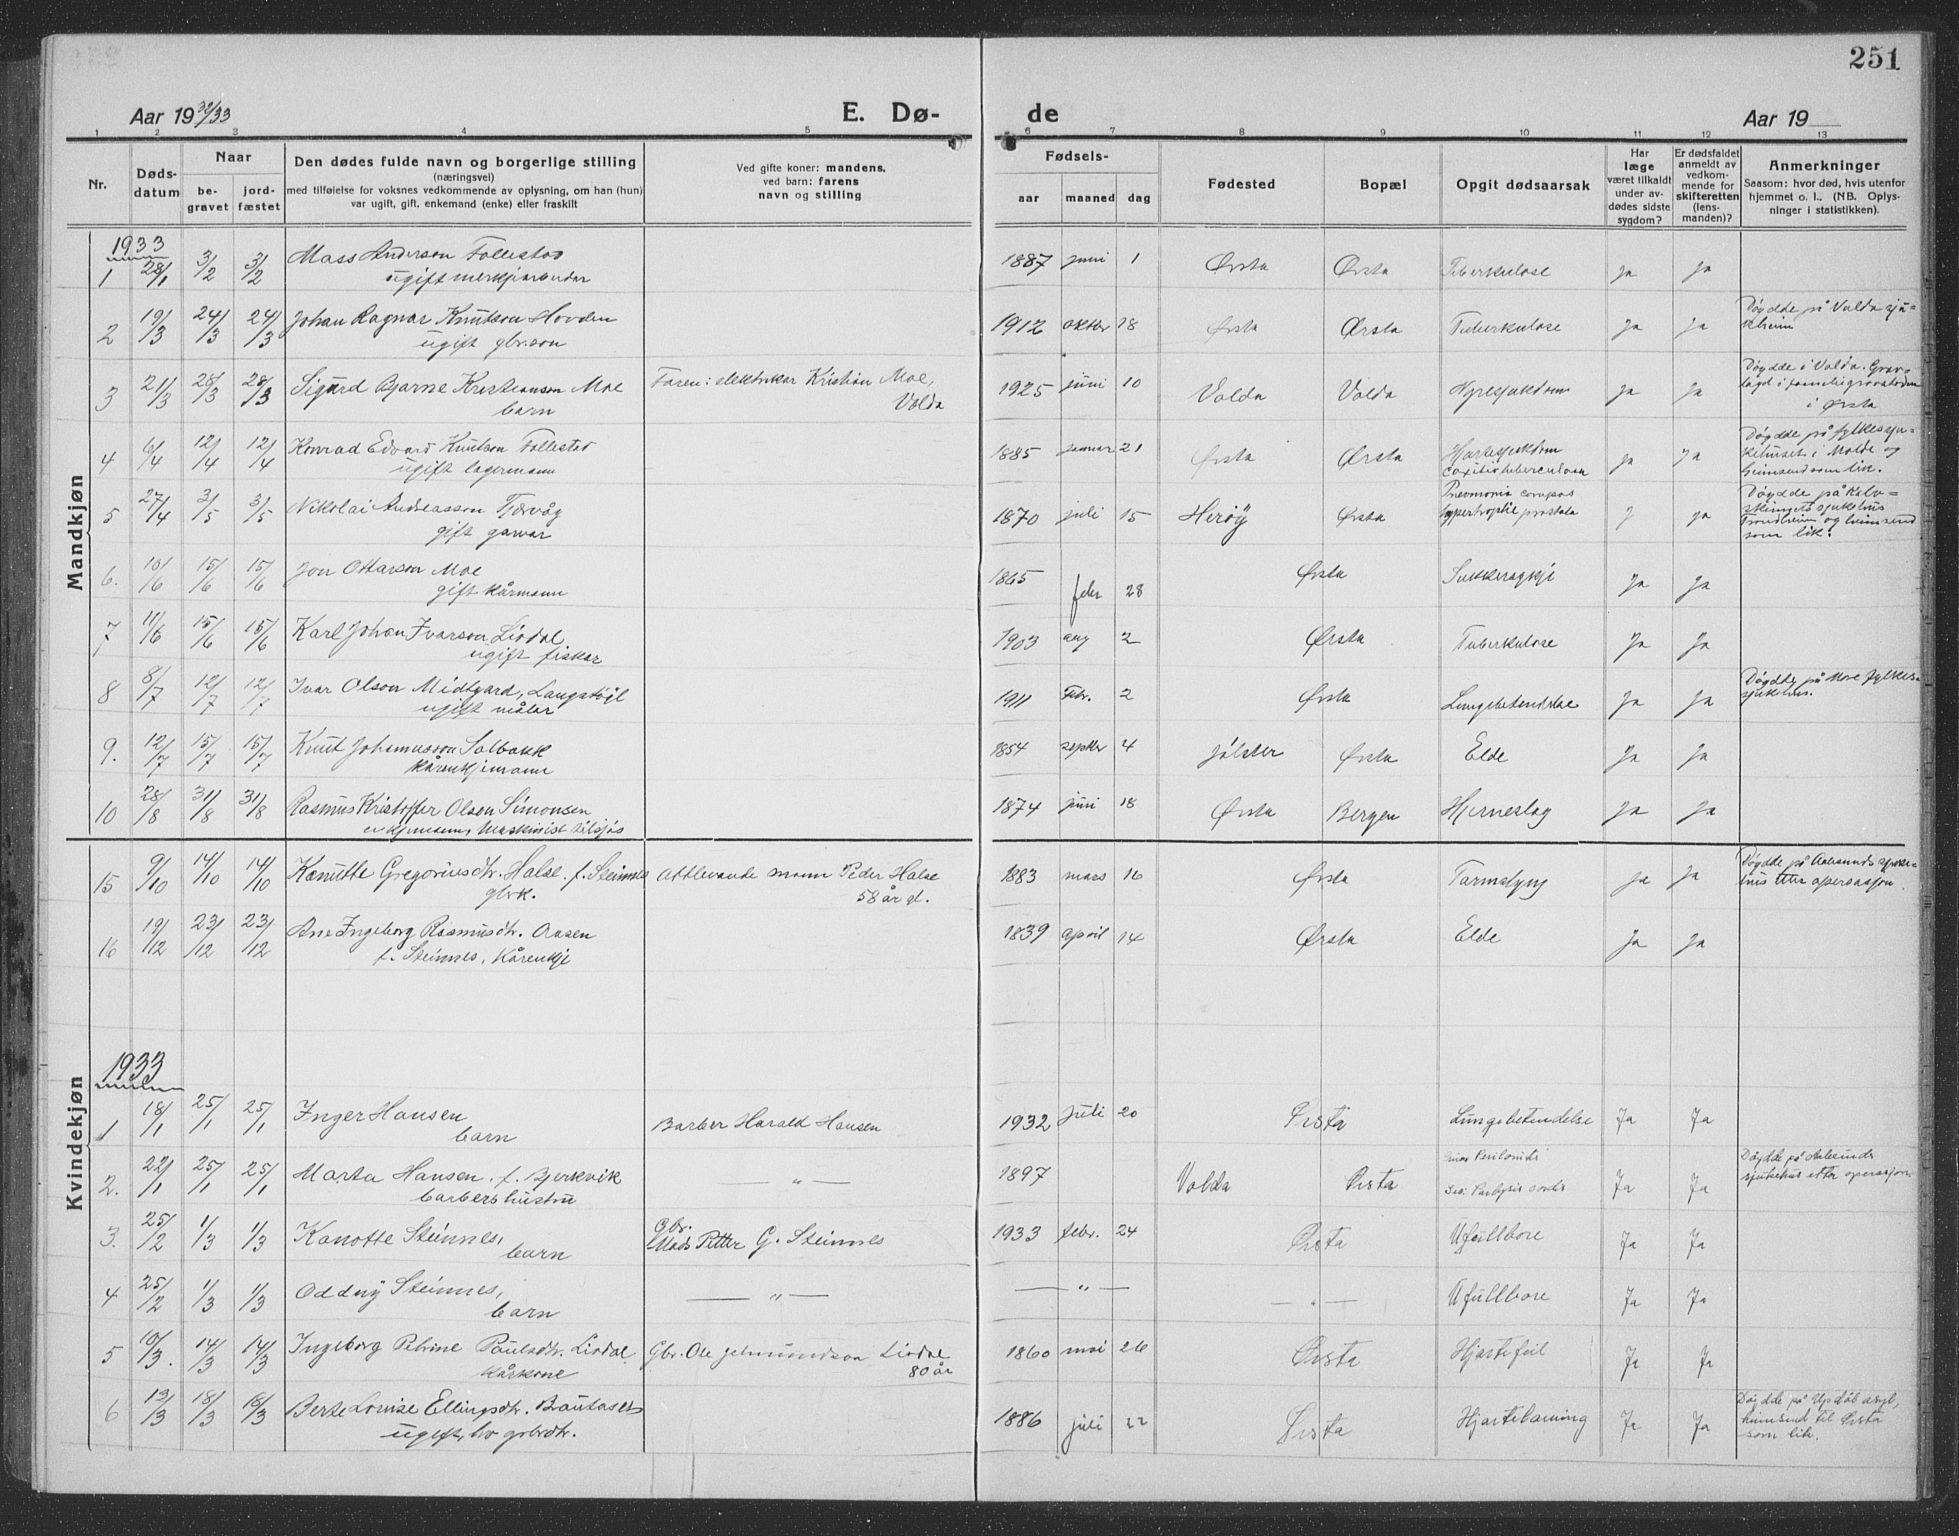 251
Aar 19 32/33 E. Dø- de Aar 19
1 2 3 4 5 6 7 8 9 10 11 12 13
Nr. Døds-datum Naar be-gravet jord-fæstet
Den dødes fulde navn og borgerlige stilling
(næringsvei)
med tilføielse for voksnes vedkommende av oplysning, om han (hun)
var ugift, gift, enkemand (enke) eller fraskilt
Ved gifte koner: mandens,
ved barn: farens
navn og stilling
Fødsels- aar maaned dag
Fødested Bopæl Opgit dødsaarsak
Har læge været tilkaldt under av-dødes sidste sygdom?
Er dødsfaldet anmeldt av vedkom-mende for skifteretten (lens-manden)?
Anmerkninger
Saasom: hvor død, hvis utenfor hjemmet o. l., (NB. Oplys-ninger i statistikken).
Mandkjøn
1933
1 28/1 3/2 3/2 Mass Anderson Follestad 1887 juni 1 Ørsta Ørsta Tuberkulose ja ja
ugift
2 19/3 24/3 24/3 Johan Ragnar Knutson Hovden 1912 oktbr 18 Ørsta Ørsta Tuberkulose ja ja Døydde på Volda sju-
ugift gbr.son keheim
3 21/3 28/3 28/3 Sigurd Bjarne Kristianson Moe Faren: elektrikar Kristian Moe, 1925 juni 10 Volda Volda ja ja Døydde i Volda. Grav-
barn Volda lagd i
i Ørsta
4 6/4 12/4 12/4 Konrad Edvard Knutson Follestad 1885 januar 21 Ørsta Ørsta Hjartesjukdom ja ja Døydde på fylkessju-
ugift lagermann kehuset i Molde og
heimsend som lik.
5 27/4 3/5 3/5 Nikolai Andreasson Tjørvåg 1870 juli 15 Herøy Ørsta Pneumonia ja Døydde på
gift garvar hypertrophie prostata sjukehus
Trondheim og heimsend
som lik.
6. 10/6 15/6 15/6 Jon Ottarson Moe 1865 febr 28 Ørsta Sukkersykje Ja Ja
gift kårmann
7 11/6 15/6 15/6 Karl Johan Ivarson Lisdal 1903 aug 2 Ørsta Tuberkulose Ja Ja
ugift fiskar
8 8/7 12/7 12/7 Ivar Olson Midtgard, 1911 Febr. 2 Ørsta Lungebetendelse Ja Ja Døydte på Møre fylkes-
ugift målar sjukehus.
9. 12/7 15/7 15/7 Knut Johannesson Solbakk 1854 septbr 4 Jølster Ørsta Elde Ja Ja
kårenkjemann
10 28/8 31/8 31/8 Rasmus Kristoffer Olson Simonsen 1874 juni 18 Ørsta Bergen Hjerneslag Ja Ja
enkjemann, Maskinist tilsjøs
15 9/10 14/10 14/10 Kanutte Gregoriusdtr. Halse f. Steinnes Attlevande mann Peder Halse 1883 mars 16 Ørsta Tarmslyng ja ja Døydde på Aalesunds sjuke-
gbrk. 58 år gl. hus etter operasjon.
16 19/12 23/12 23/12 Ane Ingeborg Rasmusdtr. Aasen 1839 april 14 Ørsta Elde ja ja
f. Steinnes, Kårenkje
Kvindekjøn
1933
1 18/1 25/1 25/1 Inger Hansen Barber Harald Hansen 1932 juli 20 Ørsta Lungebetendelse Ja Ja
barn
2. 22/1 25/1 25/1 Marta Hansen, f. Bjerkvik — " — 1897 Volda Ørsta Ja Ja Døydde på Aalesunds
barbershustru sjukehus etter operasjon
3. 25/2 1/3 1/3 Kanotte Steinnes, Gbr. Mads Petter G. Steinnes 1933 febr. 24 Ørsta Ufullbore Ja Ja
barn
4 25/2 1/3 1/3 Oddny Steinnes, — " — — " — — " — Ufullbore Ja Ja
barn
5 10/3. 14/3 14/3 Ingeborg Petrine Paulsdtr. Lisdal Gbr. Ole Lisdal 1860 mai 26 Ørsta Hjartefeil Ja Ja
kårkone 80 år
6 13/3 18/3 18/3 Berte Lovise Ellingsdtr. Brautaset 1886 juli 22 Ørsta Hjartelaming Ja Ja Døydde på asyl,
ugift, gbrdtr. heimsend til Ørsta
som lik.